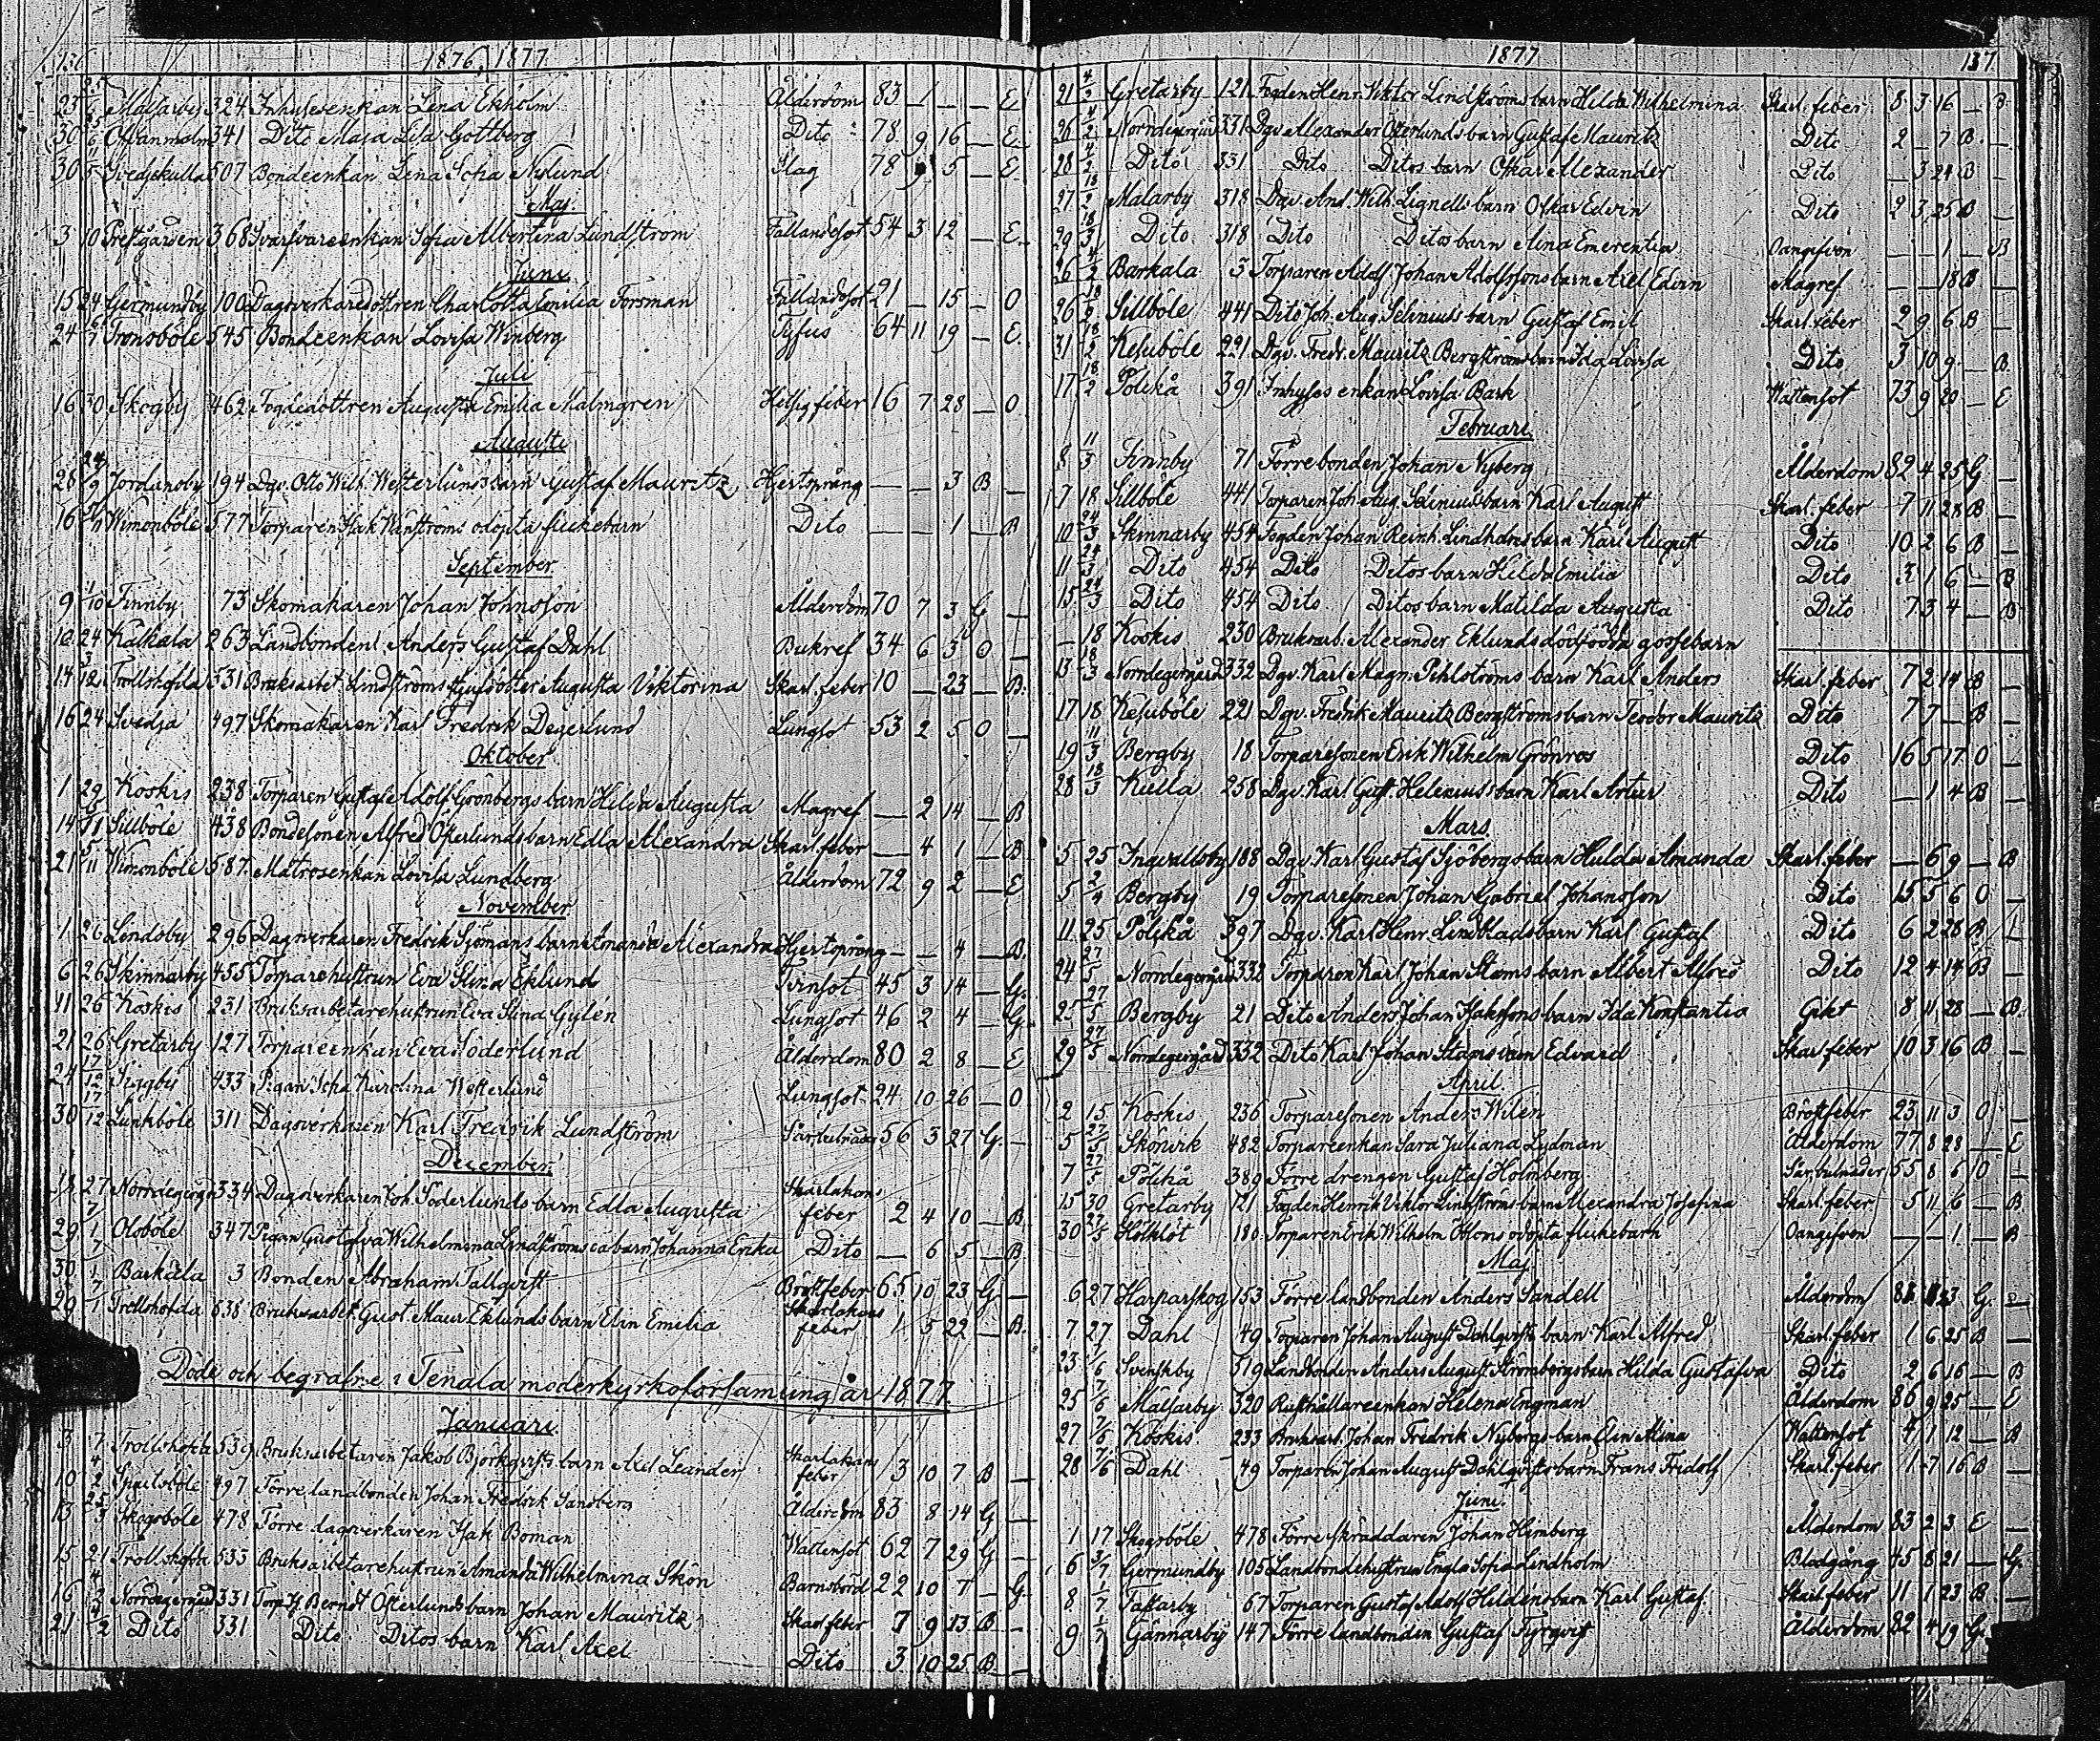 136 1876, 1877
23 Malsarby 324 Inhysesenkan Lena Ekholm Ålderdom 83 1 — — E.
30 341 Dito Maja Lisa Gottberg Dito 78 9 16 — E.
30 Svedjekulla 507 Bondeenkan Lena Sofia Nylund Slag 78 9 5 — E.
Maj.
3 10 Prestgården 368 Svarfvareenkan Sofia Albertina Lundström Fallandesot 54 3 12 — E.
Juni
15 24 Germundby 100 Dagsverkaredottren Charlotta Emilia Forsman Fallandesot 21 — 15 — O
24 Tronsböle 545 Bondeenkan Lovisa Winberg Tyfus 64 11 19 — E.
Juli
16 30 Skogby 462 Fogdedottren Augusta Emilia Malmgren Hetsig feber 16 7 28 — O
Augusti
28 24/9 Jordansby 194 Dgv. Otto Wilh. Westerlunds barn Gustaf Mauritz Hjertsprång — — 3 B —
16 Wimonböle 577 Torparen Isak Winströms odöpta flickebarn Dito — — 1 — B.
September
9 1/10 Finnby 73 Skomakaren Johan Johnsson Ålderdom 70 7 3 G —
10 24 Kalkala 263 Landbonden Anders Gustaf Dahl Bukref 34 6 3 O —
14 3/12 Trollshofda 531 Bruksarbet. Lindströms styfdotter Augusta Viktorina Skarl. feber 10 — 23 — B.
16 24 Svedja 497 Skomakaren Karl Fredrik Degerlund Lungsot 53 2 5 O —
Oktober
1 29 Koskis 238 Torparen Gustaf Adolf Grönbergs barn Hilda Augusta Magref — 2 14 — B
14 5/11 Sillböle 438 Bondesonen Alfred Österlunds barn Edla Alexandra Skarl. feber — 4 1 — B
21 5/11 Wimonböle 587 Matrosenkan Lovisa Lundberg Ålderdom 72 9 2 — E
November
1 26 Lindsby 296 Dagsverkaren Fredrik Sjömans barn Amanda Alexandra Hjertsprång — — 4 — B.
6 26 Skinnarby 455 Torparehustrun Eva Stina Eklund Tvinsot 45 3 14 — G.
11 26 Koskis 231 Bruksarbetarehustrun Eva Stina Gylén Lungsot 46 2 4 — G.
21 26 Gretarby 127 Torpareenkan Eva Söderlund Ålderdom 80 2 8 — E
24 17/12 Siggby 433 Pigan Sofia Karolina Westerlund Lungsot 24 10 26 — O
30 17/12 Lunkböle 311 Dagsverkaren Karl Fredrik Lundström Sårbulnader 56 3 27 G. —
December.
18 27 Norrdegergd 334 Dagsverkaren Joh. Söderlunds barn Edla Augusta Skarlakans feber 2 4 10 — B.
29 7/1 Olsböle 347 Pigan Gustafva Wilhelmina Lindströms oä barn Johanna Erika Dito — 6 5 — B.
30 7/1 Barkala 3 Bonden Abraham Tallqvist Bröstfeber 65 10 23 G. —
29 7/1 Trollshofda 538 Bruksarbet. Gust. Maur. Eklunds barn Elin Emilia Skarlakans feber 1 5 22 — B.
Döde och begrafne i Tenala moderkyrkoförsamling år 1877.
Januari.
3 7 Trollshofda 539 Bruksarbetaren Jakob Björkqvists barn Axel Leander Skarlakans feber 3 10 7 B —
10 4/2 497 Förre landbonden Johan Fredrik Sandberg Ålderdom 83 8 14 G —
13 25/3 Skogsböle 478 Förre dagsverkaren Isak Boman Wattensot 62 7 29 G. —
15 21 Trollshofda 533 Bruksarbetarehustrun Amanda Wilhelmina Skön Barnsbörd 22 10 7 — G.
16 4/2 Norrdegergård 331 Torp. Bernd. Österlunds barn Johan Mauritz Skarl. feber 7 9 13 B —
21 4/2 Dito 331 Dito Ditos barn Karl Axel Dito 3 10 25 B —
1877 137
21 4/2 Gretarby 121 Fogden Henr. Viktor Lindströms barn Hilda Wilhelmina Skarl. feber 8 3 16 — B.
26 4/2 Norrdegergård 331 Dgv. Alexander Österlunds barn Gustaf Mauritz Dito 2 — 7 B. —
28 4/2 Dito 331 Dito Ditos barn Oskar Alexander Dito — 3 24 B —
27 18/2 Malarby 318 Dgv. And. Wilh. Lignells barn Oskar Edvin Dito 2 3 25 B —
29 18/3 Dito 318 Dito Ditos barn Aina Emerentia Oangifven — — 1 — B
26 4/2 Barkala 3 Torparen Adolf Johan Adolfssons barn Axel Edvin Magref — — 18 B —
26 18/2 Sillböle 441 Dito Joh. Aug. Selenius barn Gustaf Emil Skarl. feber 2 9 6 B —
31 18/2 Kesuböle 221 Dgv. Fredr. Mauritz Bergströms barn Ida Lovisa Dito 3 10 9 — B.
17 18/2 Pölkå 391 Inhyses enkan Lovisa Bark Wattensot 73 9 20 — E
Februari
8 11/3 Finnby 71 Förre bonden Johan Nyberg Ålderdom 82 4 25 G —
7 18 Sillböle 441 Torparen Joh. Aug. Selenius barn Karl August Skarl. feber 7 11 28 B —
10 24/3 Skinnarby 454 Fogden Johan Reinh. Lindholms barn Karl August Dito 10 2 6 B —
11 24/3 Dito 454 Dito Ditos barn Hilda Emilia Dito 3 1 6 — B
15 24/3 Dito 454 Dito Ditos barn Matilda Augusta Dito 7 3 4 — B
— 18 Koskis 230 Bruksarb. Alexander Eklunds dödfödda gossebarn
13 18/3 Norrdegergård 332 Dgv. Karl Magn. Pihlströms barn Karl Anders Skarl. feber 7 2 14 B —
17 18 Kesuböle 221 Dgv. Fredrik Mauritz Bergströms barn Teodor Mauritz Dito 7 7 — B —
19 11/3 Bergby 18 Torparesonen Erik Wilhelm Grönroos Dito 16 5 17 O —
28 18/3 Kulla 258 Dgv. Karl Gust. Helenius barn Karl Artur Dito — 1 4 B —
Mars.
5 25 Ingvallsby 188 Dgv. Karl Gustaf Sjöbergs barn Hulda Amanda Skarl. feber — 6 9 — B
5 2/4 Bergby 19 Torparesonen Johan Gabriel Johansson Dito 15 5 6 O —
11 25 Pölkå 397 Dgv. Karl Henr. Lindblads barn Karl Gustaf Dito 6 2 28 B —
24 27/5 Norrdegergård 332 Torparen Karl Johan Stams barn Albert Alfred Dito 12 4 14 B —
25 27/5 Bergby 21 Dito Anders Johan Isakssons barn Ida Konstantia Gikt 8 11 28 — B.
29 27/5 Norrdegergård 332 Dito Karl Johan Stams barn Edvard Skarl. feber 10 3 16 B —
April.
2 15 Koskis 236 Torparesonen Anders Wilén Bröstfeber 23 11 3 O —
5 27/5 Skönvik 482 Torpareenkan Sara Juliana Lydman Ålderdom 77 8 23 — E
7 27/5 Pölkå 389 Förre drengen Gustaf Holmberg Sårbulnader 55 8 6 O —
15 30 Gretarby 121 Fogden Henrik Viktor Lindströms barn Alexandra Josefina Skarl. feber 5 11 6 — B
30 27/5 180 Torparen Erik Wilhelm odöpta flickebarn Oangifven — — 1 — B
Maj
6 27 Harparskog 153 Förre landbonden Anders Sandell Ålderdom G. —
7 27 Dahl 49 Torparen Johan August Dahlqvists barn Karl Alfred Skarl. feber 1 6 25 B —
23 7/6 Svenskby 519 Landbonden Anders August Strömbergs barn Hilda Gustafva Dito 2 6 16 — B
25 7/6 Malsarby 320 Rusthållareenkan Helena Engman Ålderdom 86 9 25 — E
27 7/6 Koskis 233 Bruksarb. Johan Fredrik Nybergs barn Elin Alina Wattensot 4 1 12 — B
28 7/6 Dahl 49 Torparen Johan August Dahlqvists barn Frans Fridolf Skarl. feber 1 7 16 B —
Juni.
1 17 Skogsböle 478 Förre skräddaren Johan Himberg Ålderdom 83 2 3 E —
6 3/7 Germundby 105 Landbondehustrun Engla Sofia Lindholm Blodgång 45 8 21 — G.
8 1/7 Fastarby 67 Torparen Gustaf Adolf Hildéns barn Karl Gustaf Skarl. feber 11 1 23 B. —
9 1/7 Gännarby 147 Förre landbonden Gustaf Fyrqvist Ålderdom 82 4 19 G.